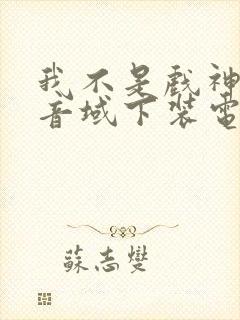 我不是戲神
音域下裝電
蘇志燮